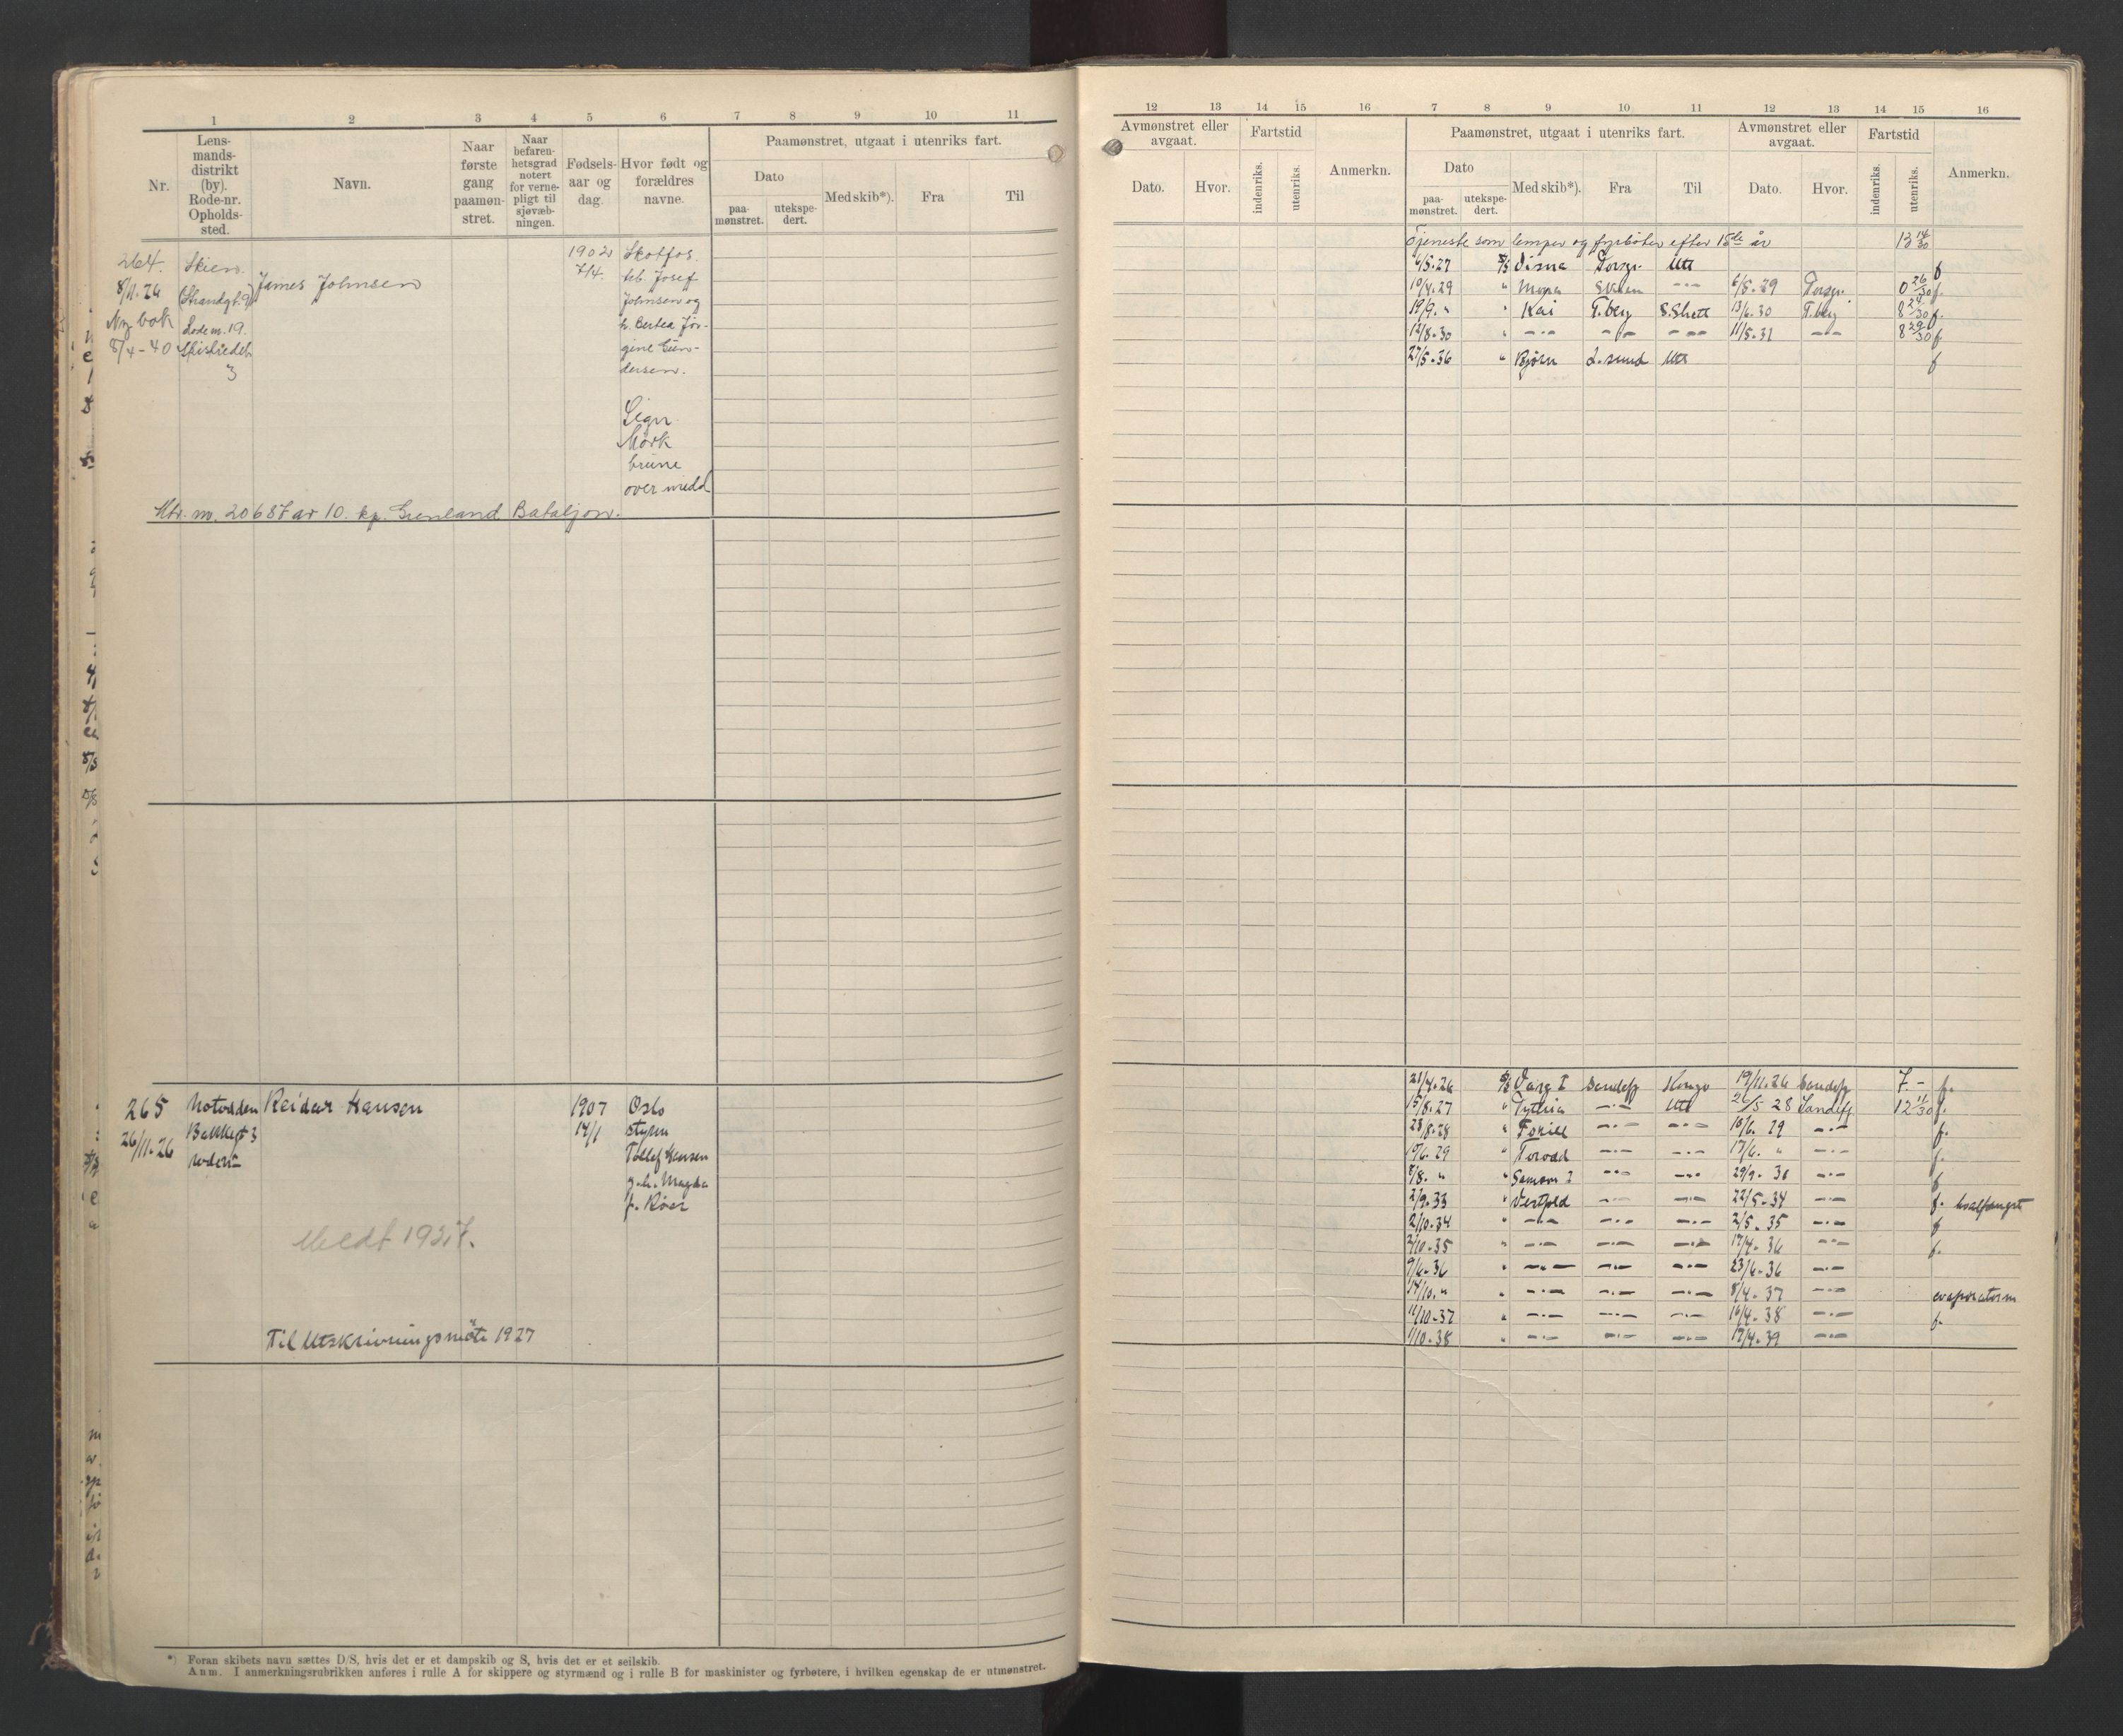 1 2 3 4 5 6 7 8 9 10 11
Nr.
Lens-
mands-
distrikt
(by).
Rode-nr.
Opholds-
sted.
Navn.
Naar
første
gang
paamøn-
stret.
Naar
befaren-
hetsgrad
notert
for verne-
pligt til
sjøvæb-
ningen.
Fødsels-
aar og
dag.
Hvor født og
forældres
navne.
Paamønstret, utgaat i utenriks fart.
Dato
paa-
mønstret.
utekspe-
dert.
Med skib*).
Fra
Til
264.
8/11.26
Ny bok
8/4-40
Skien.
Strandgt. 9
Rode nr. 19.
3
James Johnsen
1902
7/4.
Skotfos.
Josef
Johnsen og
h. Bertea Jør-
gine Gun-
dersen.
Sign.
Mørk
brune
over medd
Mtr. nr. 20687 av 10. kp. Grenland Bataljon.
265
26/11.26
Notodden
Reidar Hansen
1907
14/1
Oslo
styrm
Tollef Hansen
g.h. Magda
f. Röer
Meldt 1927.
Til Utskrivningsmöte 1927
*) Foran skibets navn sættes D/S, hvis det er et dampskib og S, hvis det er et seilskib.
Anm. I anmerkningsrubrikken anføres i rulle A for skippere og styrmænd og i rulle B for maskinister og fyrbøtere, i hvilken egenskap de er utmønstret.
12 13 14 15 16 7 8 9 10 11 12 13 14 15 16
Avmønstret eller
avgaat.
Dato.
Hvor.
Fartstid
indenriks.
utenriks.
Anmerkn.
Paamønstret, utgaat i utenriks fart.
Dato
paa-
mønstret.
utekspe-
dert.
Med skib*).
Fra
Til
Avmønstret eller
avgaat.
Dato.
Hvor.
Fartstid
indenriks.
utenriks.
Anmerkn.
Tjeneste som lemper og fyrböter efter 15de år 13 14/30
6/5.27 Disna Porsgr. Utl f
10/4.29 " Skien -"- 6/5.29 Porsgr. 0 26/30 f.
19/9. " " Kai T.berg S.Shetl 13/6.30 T.berg 8 24/30 f.
12/8.30 " -"- -"- -"- 11/5.31 -"- 8 29/30 f
27/5.36 " Bjørn L.sund Utl f
21/4.26 Sandefj 19/11.26 Sandefj 7.- f.
15/8.27 " Pythia -"- Utl 26/5 28 Sandefj 12 11/30 f.
23/8.28 " -"- -"- 10/6. 29 -"- f.
10/6.29 " Torodd -"- -"- 17/6. " -"- f.
8/8. " " -"- -"- 29/9. 30 -"- f
2/9.33 " Vestfold -"- -"- 22/5.34 -"- f. hvalfangst
2/10.34 " -"- -"- -"- 2/5. 35 -"- f
2/10.35 " -"- -"- -"- 17/4. 36 -"- f.
9/6.36 " -"- -"- -"- 23/6.36 -"-
14/10. " " -"- -"- -"- 8/4. 37 -"- evaporatorm
11/10.37 " -"- -"- -"- 16/4.38 -"- f.
1/10.38 " -"- -"- -"- 17/4.39 -"-